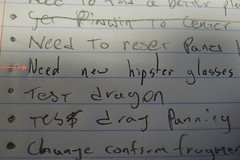 Need to find a better place
Get Pinwin to center
• Need To reset Panel
• Need new hipster glasses
• TEST dragon
• TES$ drag Panning
• Change confirm fragment